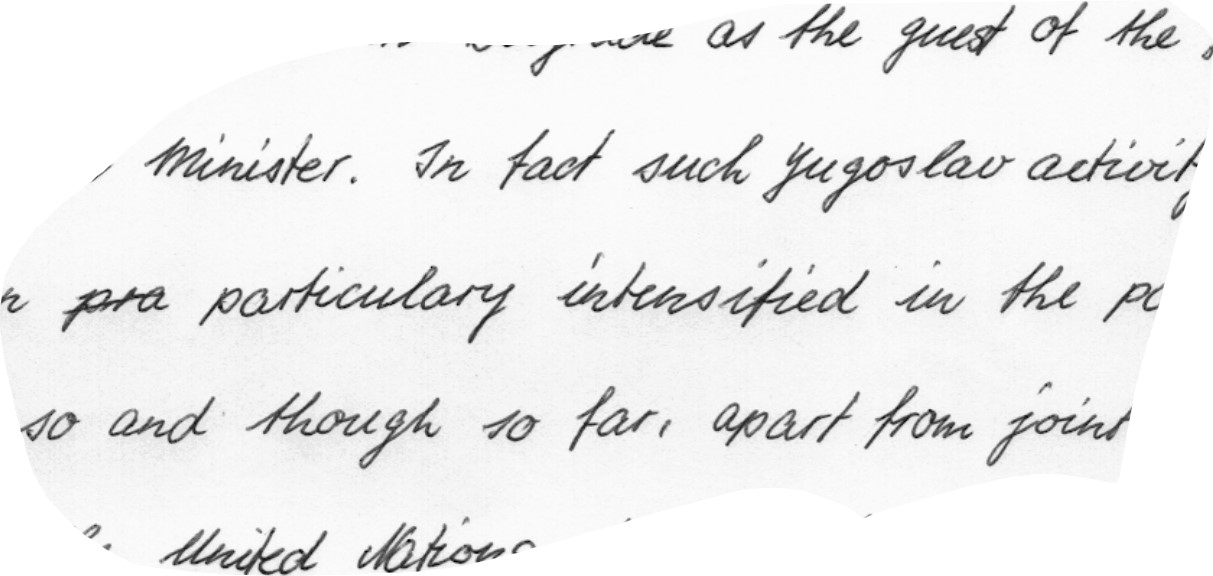 as the guest of the
Minister. In fact such Yugoslav
pra particulary intensified in the
so and though so far, apart from joint
United Nations